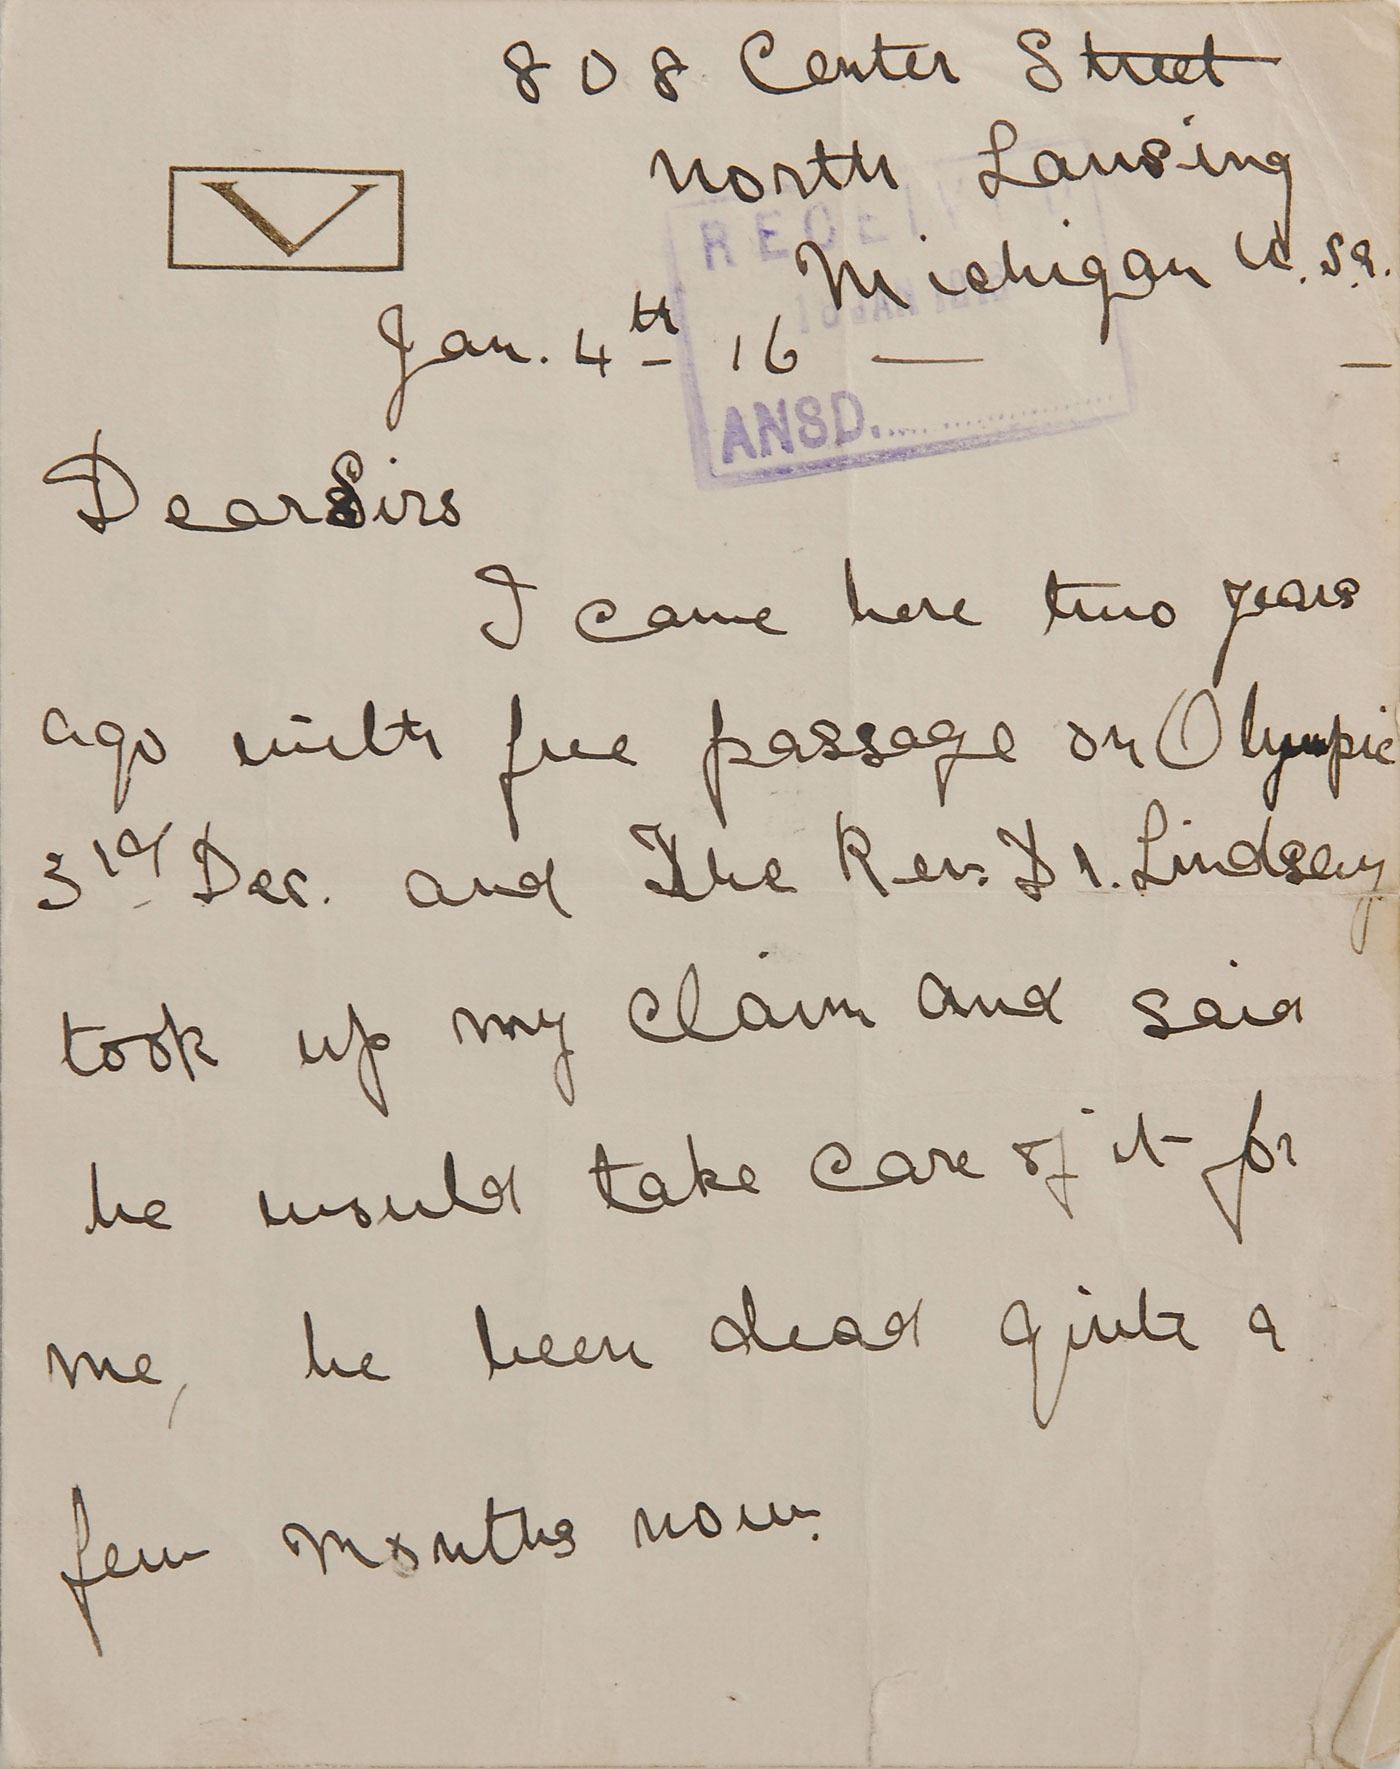 808 Center Street
North Lansing
Michigan U.S.A.
V
RECEIVED
JAN
Jan. 4th 16 —
ANSD.
Dear Sirs
I came here two years
ago with free passage on Olympic
3rd Dec. and The Rev. Dr. Lindsay
took up my claim and said
he would take care of it for
me, he been dead quite a
few months now.